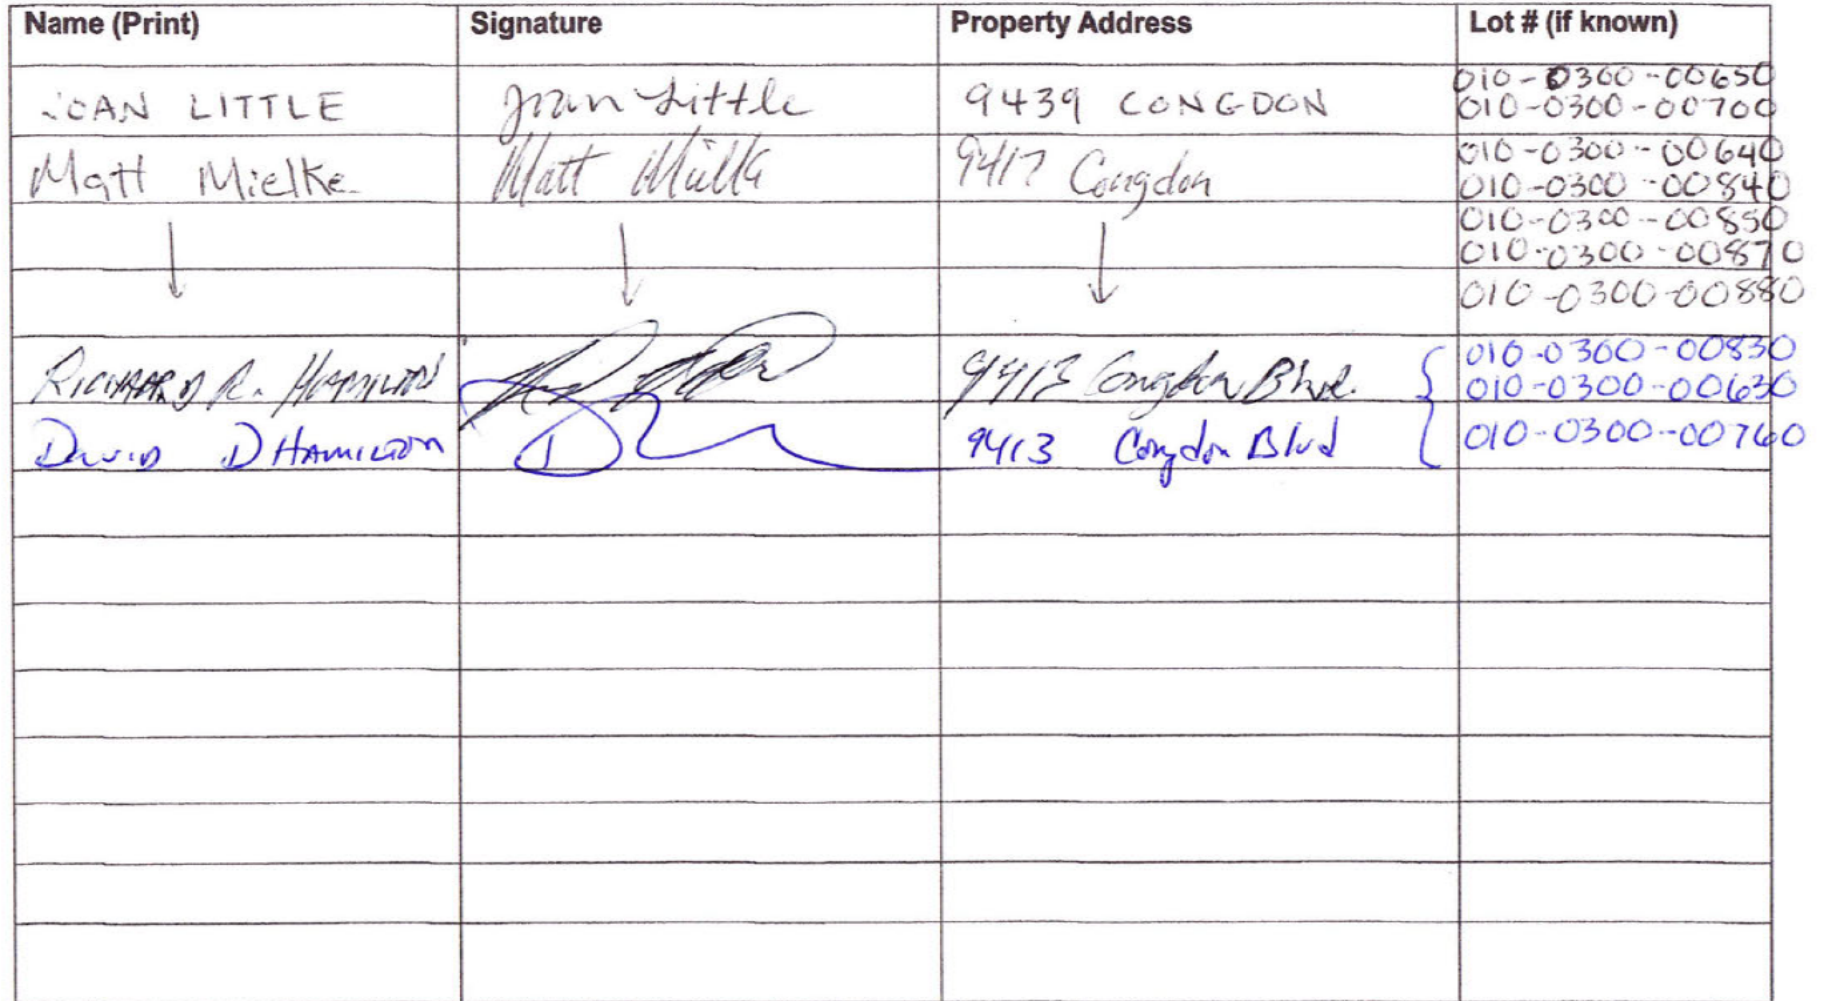 Name (Print) Signature Property Address Lot # (if known)
010-0300-00650
JOAN LITTLE Joan Little 9439 CONGDON 010-0300-00700
010-0300-00640
Matt Mielke Matt Mielke 9417 Congdon 010-0300-00840
010-0300-00850
010-0300-00870
010-0300-00880
RICHARD R. HAMILTON 9413 Congdon Blvd. 010-0300-00830
010-0300-00630
DAVID D HAMILTON 9413 Congdon Blvd 010-0300-00760